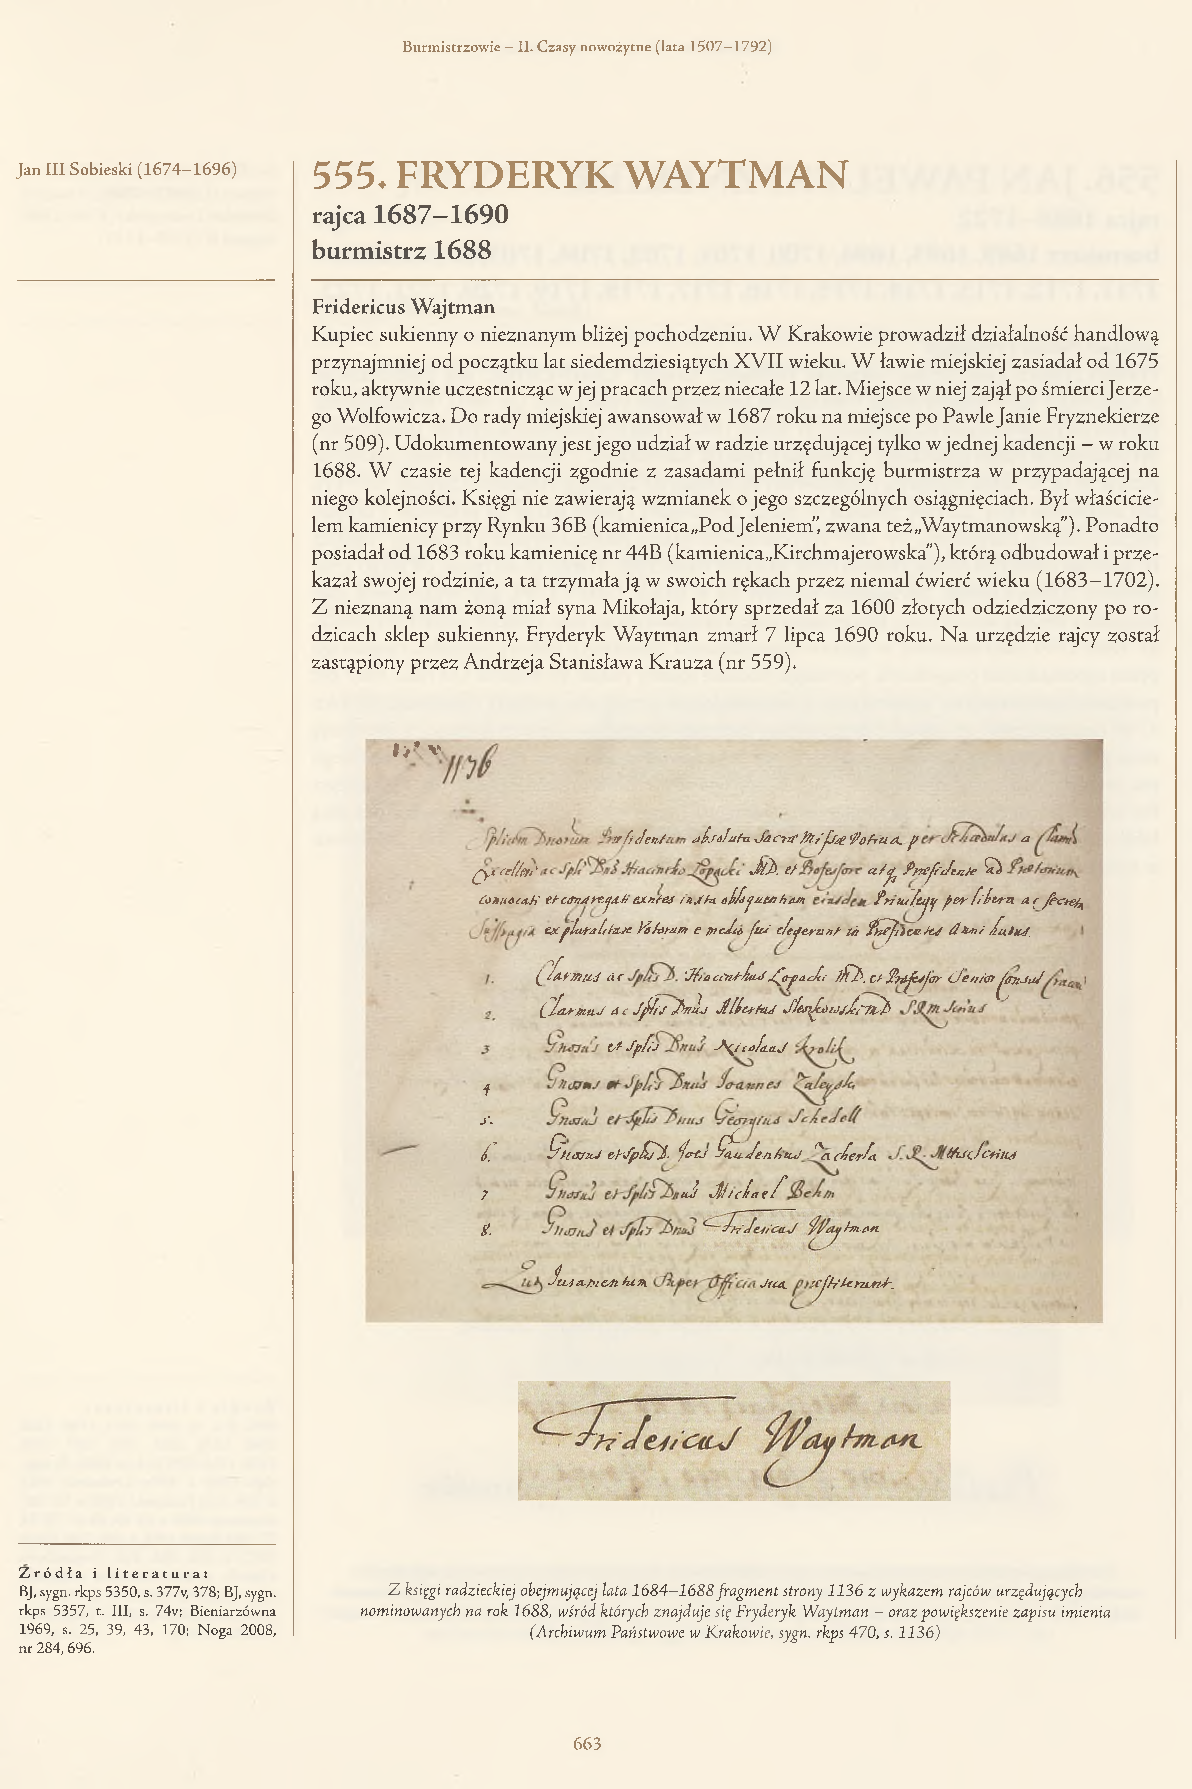 Burmistrzowie – II. Czasy nowożytne (lata 1507–1792)
Jan III Sobieski (1674–1696)
555. FRYDERYK WAYTMAN
rajca 1687–1690
burmistrz 1688
Fridericus Wajtman
Kupiec sukienny o nieznanym bliżej pochodzeniu. W Krakowie prowadził działalność handlową
przynajmniej od początku lat siedemdziesiątych XVII wieku. W ławie miejskiej zasiadał od 1675
roku, aktywnie uczestnicząc w jej pracach przez niecałe 12 lat. Miejsce w niej zajął po śmierci Jerze-
go Wolfowicza. Do rady miejskiej awansował w 1687 roku na miejsce po Pawle Janie Fryznekierze
(nr 509). Udokumentowany jest jego udział w radzie urzędującej tylko w jednej kadencji – w roku
1688. W czasie tej kadencji zgodnie z zasadami pełnił funkcję burmistrza w przypadającej na
niego kolejności. Księgi nie zawierają wzmianek o jego szczególnych osiągnięciach. Był właścicie-
lem kamienicy przy Rynku 36B (kamienica „Pod Jeleniem”, zwana też „Waytmanowską”). Ponadto
posiadał od 1683 roku kamienicę nr 44B (kamienica „Kirchmajerowska”), którą odbudował i prze-
kazał swojej rodzinie, a ta trzymała ją w swoich rękach przez niemal ćwierć wieku (1683–1702).
Z nieznaną nam żoną miał syna Mikołaja, który sprzedał za 1600 złotych odziedziczony po ro-
dzicach sklep sukienny. Fryderyk Waytman zmarł 7 lipca 1690 roku. Na urzędzie rajcy został
zastąpiony przez Andrzeja Stanisława Krauza (nr 559).
1136
Dnorum Præsidentum absoluta Sacræ Missæ Votiua per Schædulas a
ac Hiacintho Łopacki MD. et Professore atq Præsidente ad Prætorium
conuocati et congregati exntes iuxta obloquentiam eiusdem Priuilegy per libera ac secreta
Suffragia ex pluralitate Votorum e medio sui elegerunt in Præsidentes Anni huius.
1. Clarmus ac Splis D. Hiacinthus Łopacki MD. et Professor Senior Consul
2. Clarmus ac Splis Dnus Albertus Sleszkowski MD
3 Gnosus et Splis Dnus Nicolaus Krolik
4 Gnosus et Splis Dnus Joannes Zaleyski
5. Gnosus et Splis Dnus Georgius Schedell
6. Gnosus et Splis D. Gaudentius Zacherla
7 Gnosus et Splis Dnus Michael Behm
8. Gnosus et Splis Dnus Fridericus Waytman
Juramentum super Officia sua præstiterunt.
Fridericus Waytman
Źródła i literatura:
BJ, sygn. rkps 5350, s. 377v, 378; BJ, sygn.
rkps 5357, t. III, s. 74v; Bieniarzówna
1969, s. 25, 39, 43, 170; Noga 2008,
nr 284, 696.
Z księgi radzieckiej obejmującej lata 1684–1688 fragment strony 1136 z wykazem rajców urzędujących
nominowanych na rok 1688, wśród których znajduje się Fryderyk Waytman – oraz powiększenie zapisu imienia
(Archiwum Państwowe w Krakowie, sygn. rkps 470, s. 1136)
663